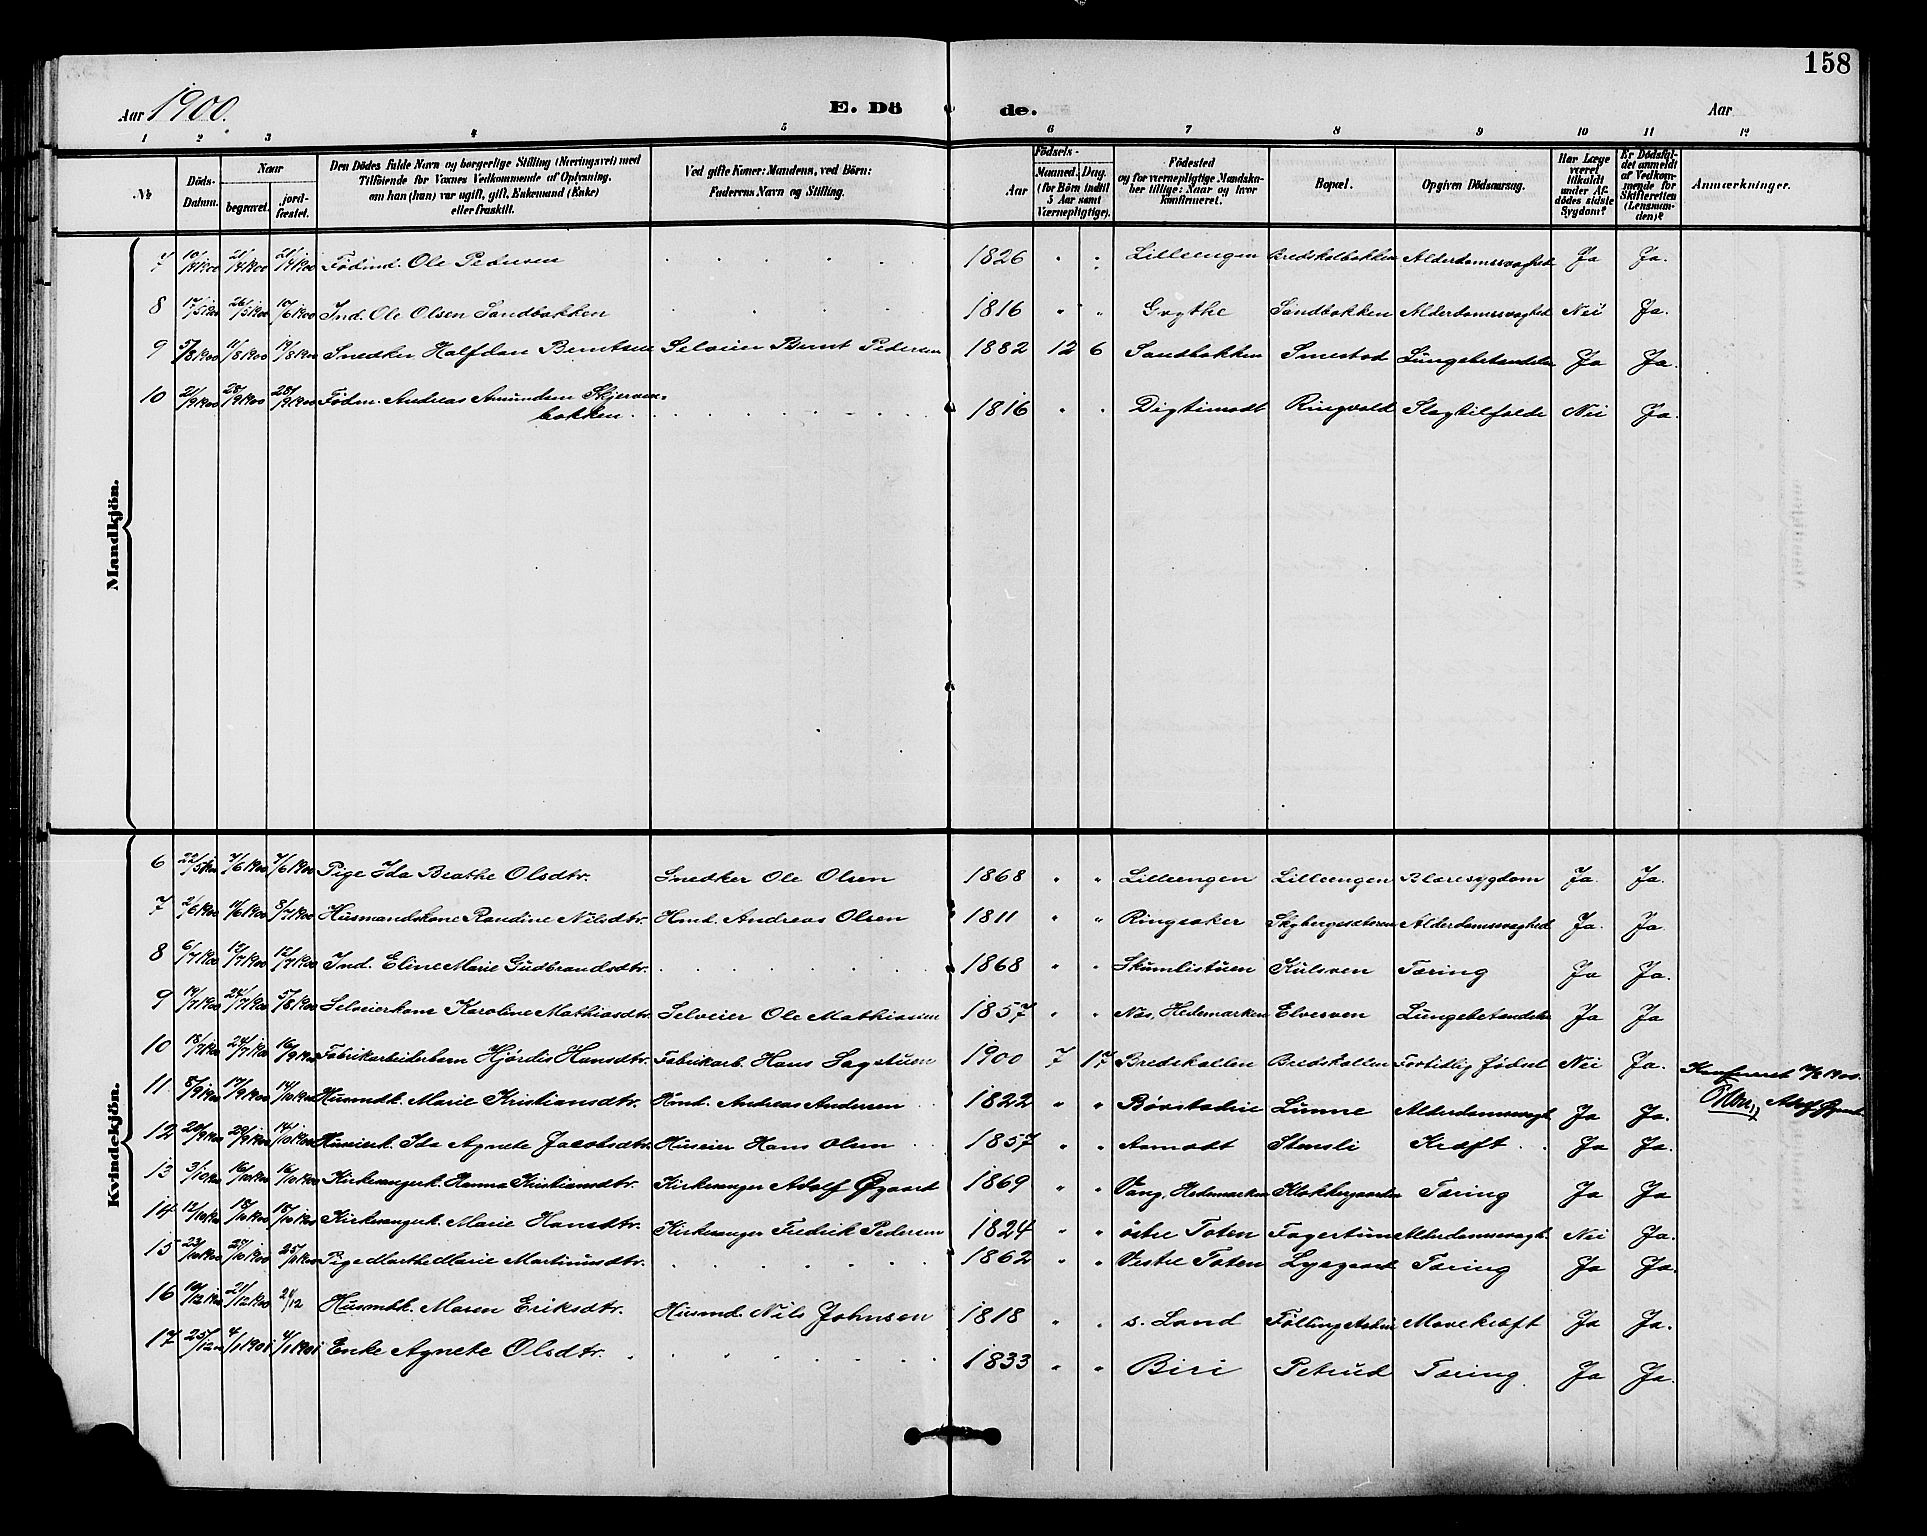 158
Aar 1900.
E. Dö de.
Aar
1 2 3 4 5 6 7 8 9 10 11 12
No
Döds-Datum.
Naar
begravet.
jord-fæstet.
Den Dödes fulde Navn og borgerlige Stilling (Næringsvei) med
Tilföiende for Voxnes Vedkommende af Oplysning,
om han (hun) var ugift, gift, Enkemand (Enke)
eller fraskilt.
Ved gifte Koner: Mandens, ved Börn:
Faderens Navn og Stilling.
Födsels-
Aar
Maaned. Dag.
(for Börn indtil
5 Aar samt
Værnepligtige).
Födested
og for værnepligtige Mandska-
ber tillige: Naar og hvor
konfirmeret.
Bopæl.
Opgiven Dödsaarsag.
Har Læge
været
tilkaldt
under Af-
dödes sidste
Sygdom?
Er Dödsfal-
det anmeldt
af Vedkom-
mende for
Skifteretten
(Lensman-
den)?
Anmærkninger.
Mandkjön.
7 10/4 1900 21/4 1900 21/4 1900 Födrd. Ole Pedersen 1826 " " Lilleengen Bredskelbakken Alderdomssvaghed Ja Ja.
8 17/5 1900 26/5 1900 10/6 1900 Ind. Ole Olsen Sandbakken 1816 " " Grythe Sandbakken Alderdomssvaghed Nei Ja.
9 5/8 1900 11/8 1900 19/8 1900 Snedker Halfdan Berntsen Selveier Bernt Pedersen 1882 12 6 Sandbakken Smestad Lungebetændelse Ja Ja.
10 21/9 1900 28/9 1900 28/9 1900 Födm. Andreas Amundsen Skjerven-
bakken. 1816 " " Digtimodt Ringvold Slagtilfælde Nei Ja.
Kvindekjön.
6 22/5 1900 7/6 1900 7/6 1900 Pige Ida Beathe Olsdtr. Snedker Ole Olsen 1868 " " Lilleengen Lilleengen Blæresygdom Ja. Ja.
7 2/6 1900 11/6 1900 8/7 1900 Husmandskone Randine Nilsdtr. Hmd. Andreas Olsen 1811 " Ringsaker Skybergssæteren Alderdomssvaghed Ja. Ja
8 6/7 1900 12/7 1900 12/7 1900 Ind. Eline Marie Gudbrandsdtr. 1868 " " Skumlistuen Kulsven Tæring Ja Ja.
9 14/7 1900 24/7 1900 5/8 1900 Selveierkone Karoline Mathiasdtr. Selveier Ole Mathiasen 1857 " " Næs, Hedemarken Elvesven Lungebetændelse Ja Ja
10 18/7 1900 24/7 1900 16/9 1900 Fabrikarbeiderbarn Hjørdis Hansdtr. Fabrikarb. Hans Sagstuen 1900 7 17 Bredskallen Bredskallen Fortidlig födsel Nei Ja.
11 8/9 1900 17/9 1900 14/10 1900 Husmdk. Marie Kristiansdtr. Hmd. Andreas Andersen 1822 " " Bøvstadeie Linne Alderdomssvagh. Ja Ja.
12 20/9 1900 29/9 1900 14/10 1900 Huseierk. Ida Agnete Jacobsdtr. Huseier Hans Olsen 1857 " " Aamodt Stensli Kræft Ja Ja.
13 3/10 1900 16/10 1900 16/10 1900 Kirkesangerk. Hanna Kristiansdtr. Kirkesanger Adolf Øgaard 1869 " " Vang, Hedemarken Klokkergaarden Tæring Ja Ja
14 12/10 1900 18/10 1900 18/10 1900 Kirkesangerk. Marie Hansdtr. Kirkesanger Fredrik Pedersen 1824 " " östre Toten Fagertun Alderdomssvagh. Nei Ja.
15 23/10 1900 25/10 1900 Pige Marthe Marie Martinusdtr. 1862 " " Vestre Toten Lysgaard Tæring Ja Ja.
16 10/12 1900 21/12 1900 21/12 Husmdk. Maren Eriksdtr. Husmd. Nils Johnsen 1818 " " s. Land Mavekræft Ja Ja.
17 25/12 4/1 1901 4/1 1901 Enke Agnete Olsdtr. 1833 " " Biri Petrud Tæring. Ja Ja.